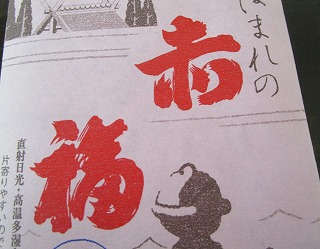 ほまれの
赤福
直射日光・高温多湿
片寄りやすいので